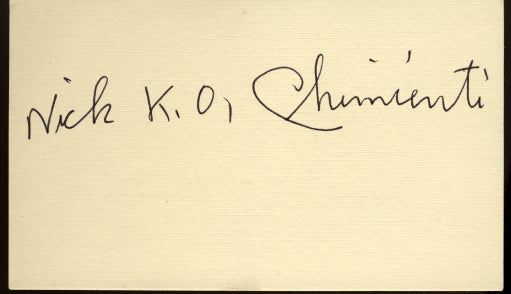 Nick K.O. Chimienti